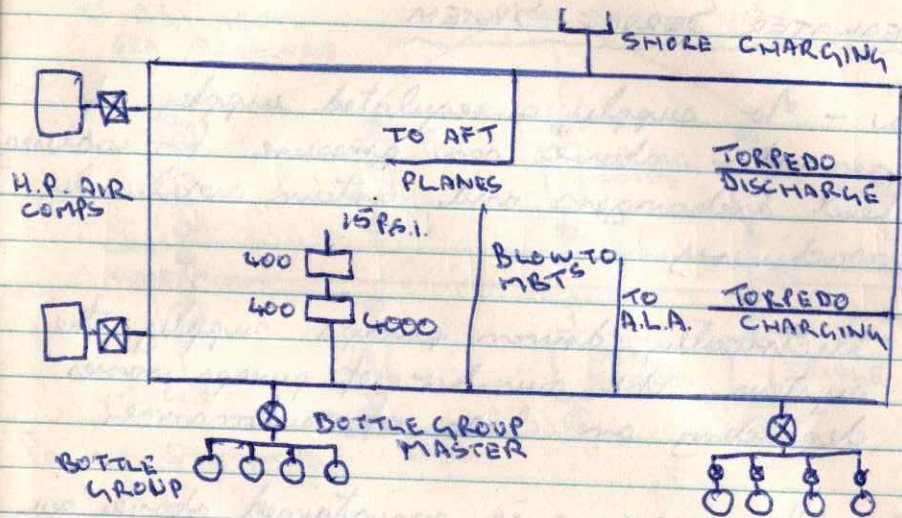 SHORE CHARGING
TO AFT
PLANES
TORPEDO
DISCHARGE
H.P. AIR
COMPS
15 P.S.I.
400
400
4000
BLOW TO
MBTS
TO
A.L.A.
TORPEDO
CHARGING
BOTTLE GROUP
MASTER
BOTTLE
GROUP